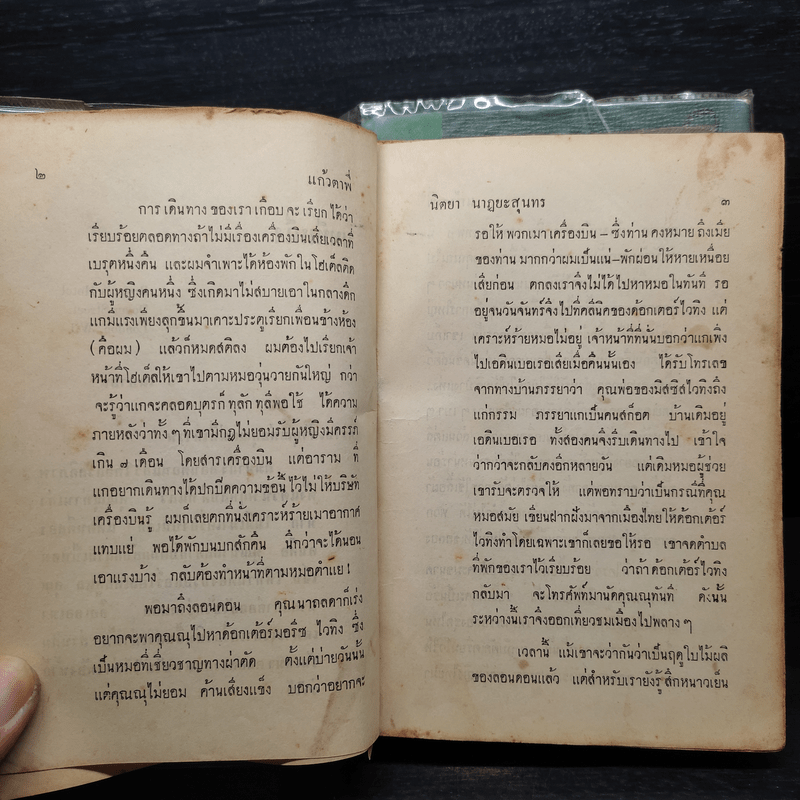 ๒
แก้วตาพี่
การ เดินทาง ของเรา เกือบ จะ เรียก ได้ว่า
เรียบร้อยตลอดทางถ้าไม่มีเรื่องเครื่องบินเสียเวลาที่
เบรุตหนึ่งคืน และผมจำเพาะได้ห้องพักในโฮเต็ลติด
กับผู้หญิงคนหนึ่ง ซึ่งเกิดมาไม่สบายเอาในกลางดึก
แกมีแรงเพียงลุกขึ้นมาเคาะประตูเรียกเพื่อนข้างห้อง
(คือผม) แล้วก็หมดสติลง ผมต้องไปเรียกเจ้า
หน้าที่โฮเต็ลให้เขาไปตามหมอวุ่นวายกันใหญ่ กว่า
จะรู้ว่าแกจะคลอดบุตรก็ทุลักทุลีพอใช้ ได้ความ
ภายหลังว่าทั้ง ๆ ที่เขามีกฎไม่ยอมรับผู้หญิงมีครรภ์
เกิน ๗ เดือน โดยสารเครื่องบิน แต่อาราม ที่
แกอยากเดินทางได้ปกปิดความข้อนี้ไว้ไม่ให้บริษัท
เครื่องบินรู้ ผมก็เลยตกที่นั่งเคราะห์ร้ายเมาอากาศ
แทบแย่ พอได้พักบนบกสักคืน นึกว่าจะได้นอน
เอาแรงบ้าง กลับต้องทำหน้าที่ตามหมอตำแย!
พอมาถึงลอนดอน คุณนาถลดาก็เร่ง
อยากจะพาคุณณุไปหาด้อกเต้อร์มอรีช ไวทิง ซึ่ง
เป็นหมอที่เชี่ยวชาญทางผ่าตัด ตั้งแต่บ่ายวันนั้น
แต่คุณณุไม่ยอม ค้านเสียงแข็ง บอกว่าอยากจะ
นิตยา นาฏยะสุนทร
๓
รอให้ พวกเมาเครื่องบิน – ซึ่งท่าน คงหมาย ถึงเมีย
ของท่าน มากกว่าผมเป็นแน่–พักผ่อนให้หายเหนื่อย
เสียก่อน ตกลงเราจึงไม่ได้ไปหาหมอในทันที รอ
อยู่จนวันจันทร์จึงไปที่คลีนิคของด้อกเตอร์ไวทิง แต่
เคราะห์ร้ายหมอไม่อยู่ เจ้าหน้าที่ที่นั่นบอกว่าแกเพิ่ง
ไปเอดินเบอเรอเสียเมื่อคืนนั้นเอง ได้รับโทรเลข
จากทางบ้านภรรยาว่า คุณพ่อของมิสซิสไวทิงถึง
แก่กรรม ภรรยาแกเป็นคนสก๊อต บ้านเดิมอยู่
เอดินเบอเรอ ทั้งสองคนจึงรีบเดินทางไป เข้าใจ
ว่ากว่าจะกลับคงอีกหลายวัน แต่เดิมหมอผู้ช่วย
เขารับจะตรวจให้ แต่พอทราบว่าเป็นกรณีที่คุณ
หมอสมัย เขียนฝากฝังมาจากเมืองไทยให้ด้อกเต้อร์
ไวทิงทำโดยเฉพาะเขาก็เลยขอให้รอ เขาจดตำบล
ที่พักของเราไว้เรียบร้อย ว่าถ้าด้อกเต้อร์ไวทิง
กลับมา จะโทรศัพท์มานัดคุณณุทันที ดังนั้น
ระหว่างนี้เราจึงออกเที่ยวชมเมืองไปพลาง ๆ
เวลานี้ แม้เขาจะว่ากันว่าเป็นฤดูใบไม้ผลิ
ของลอนดอนแล้ว แต่สำหรับเรายังรู้สึกหนาวเย็น